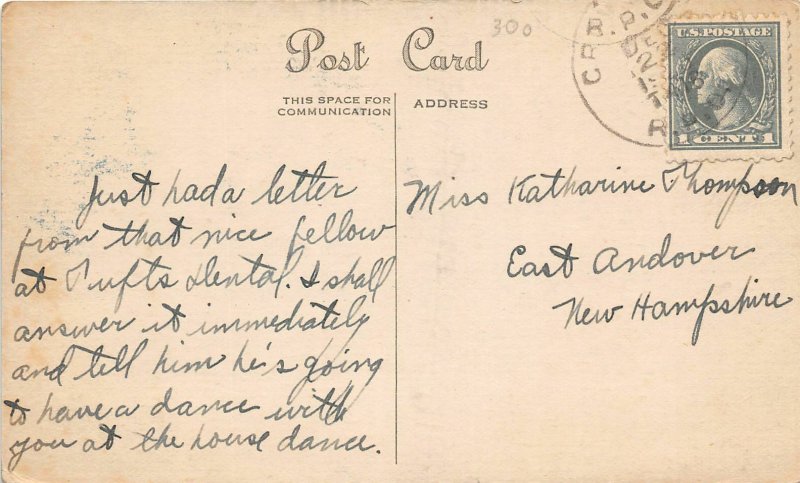 300
Post Card
THIS SPACE FOR
COMMUNICATION
ADDRESS
U.S. POSTAGE
1 CENT 1
R.P.O.
DEC
Just had a letter
from that nice fellow
at Tufts Dental. I shall
answer it immediately
and tell him he's going
to have a dance with
you at the house dance.
Miss Katharine Thompson
East Andover
New Hampshire